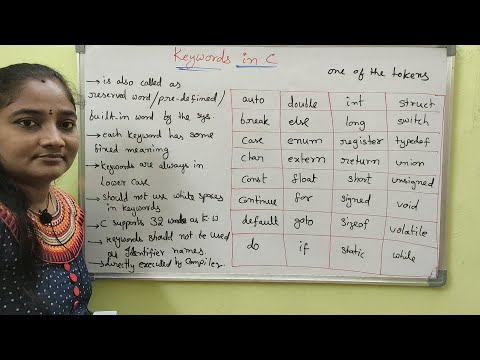 Keywords in C
one of the tokens
→ is also called as
reserved word/pre-defined/
built.in word by the sys.
→ each keyword has some
fixed meaning.
→ keywords are always in
lower case
→ should not use white spaces
in keywords
→ C supports 32 words as K.W
→ keywords should not be used
as Identifier names.
→ directly executed by Compiler.
auto double int struct
break else long switch
case enum register typedef
char extern return union
const float short unsigned
continue for signed void
default goto sizeof volatile
do if static while